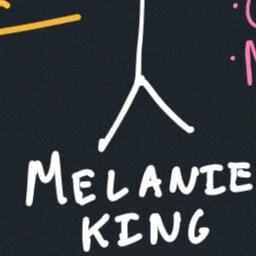 MELANIE
KING